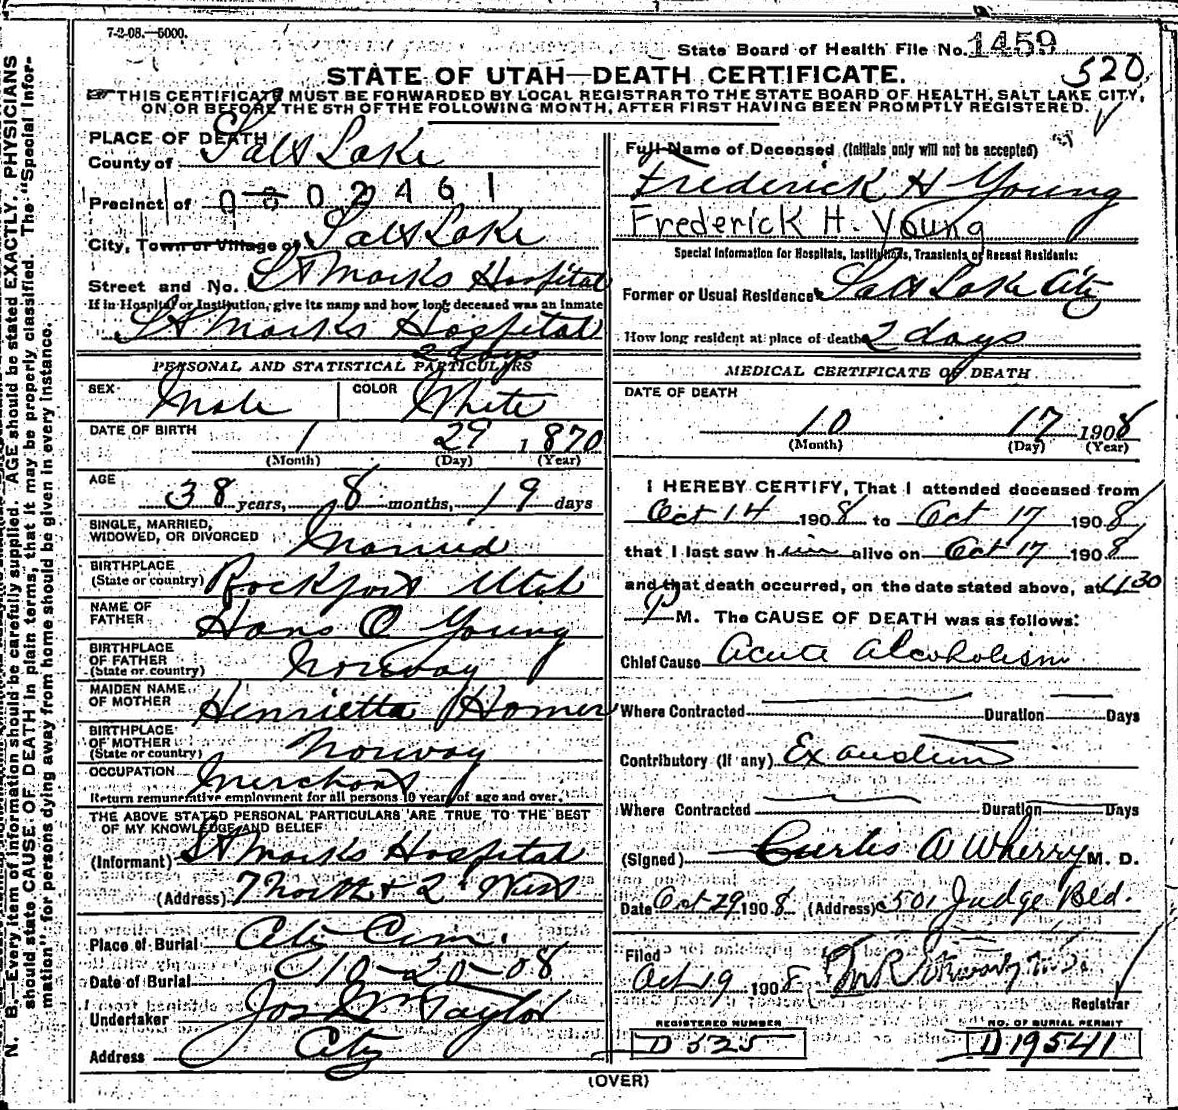 7-2-08.—5000.
State Board of Health File No. 1459
520
STATE OF UTAH—DEATH CERTIFICATE.
THIS CERTIFICATE MUST BE FORWARDED BY LOCAL REGISTRAR TO THE STATE BOARD OF HEALTH, SALT LAKE CITY,
ON OR BEFORE THE 5TH OF THE FOLLOWING MONTH, AFTER FIRST HAVING BEEN PROMPTLY REGISTERED.
N. B.—Every item of information should be carefully supplied. AGE should be stated EXACTLY. PHYSICIANS
should state CAUSE OF DEATH in plain terms, that it may be properly classified. The "Special Infor-
mation" for persons dying away from home should be given in every instance.
PLACE OF DEATH
County of Salt Lake
Precinct of 0802461
City, Town or Village of Salt Lake
Street and No. St Marks Hospital
If in Hospital or Institution, give its name and how long deceased was an inmate
St Marks Hospital
2 days
PERSONAL AND STATISTICAL PARTICULARS
SEX Male COLOR White
DATE OF BIRTH 1 29 1870
(Month) (Day) (Year)
AGE 38 years, 8 months, 19 days
SINGLE, MARRIED,
WIDOWED, OR DIVORCED Married
BIRTHPLACE
(State or country) Rockport Utah
NAME OF
FATHER Hans O Young
BIRTHPLACE
OF FATHER
(State or country) Norway
MAIDEN NAME
OF MOTHER Henrietta Homer
BIRTHPLACE
OF MOTHER
(State or country) Norway
OCCUPATION Merchant
Return remunerative employment for all persons 10 years of age and over.
THE ABOVE STATED PERSONAL PARTICULARS ARE TRUE TO THE BEST
OF MY KNOWLEDGE AND BELIEF
(Informant) St Marks Hospital
(Address) 7 North & 2 West
Place of Burial City Cem.
Date of Burial 10-20-08
Undertaker Jos Wm Taylor
Address City
Full Name of Deceased (Initials only will not be accepted)
Frederick H Young
Frederick H. Young
Special Information for Hospitals, Institutions, Transients or Recent Residents:
Former or Usual Residence Salt Lake City
How long resident at place of death 2 days
MEDICAL CERTIFICATE OF DEATH
DATE OF DEATH
10 17 1908
(Month) (Day) (Year)
I HEREBY CERTIFY, That I attended deceased from
Oct 14 1908 to Oct 17 1908,
that I last saw him alive on Oct 17 1908
and that death occurred, on the date stated above, at 4:30
P M. The CAUSE OF DEATH was as follows:
Chief Cause Acute Alcoholism
Where Contracted Duration Days
Contributory (if any)
Where Contracted Duration Days
(Signed) Curtis W Wherry M. D.
Date Oct 29 1908 (Address) 501 Judge Bld.
Filed
Oct 19 1908
Registrar
REGISTERED NUMBER
D 525
NO. OF BURIAL PERMIT
D 19541
(OVER)